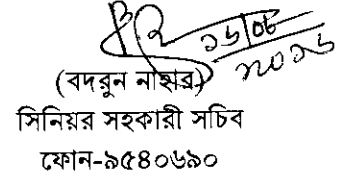 ১৬/০৮
২০১৬
(বদরুন নাহার)
সিনিয়র সহকারী সচিব
ফোন-৯৫৪০৬৯০